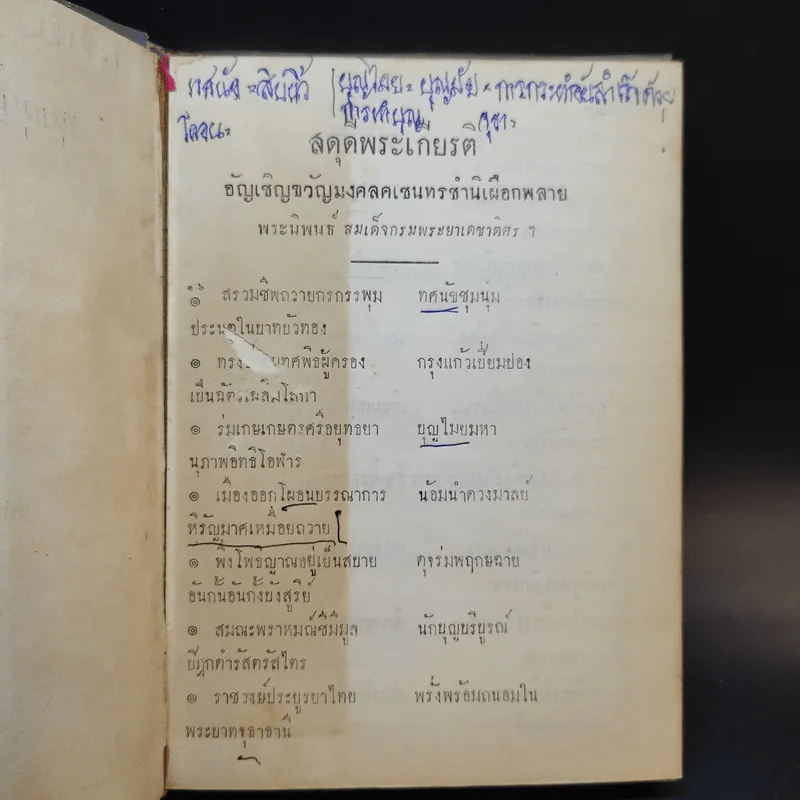 ทศนัข = สิบนิ้ว | บุญไมย = บุญมัย = การกระทำอันสำเร็จด้วย
การทำบุญ
สดุดีพระเกียรติ
อัญเชิญขวัญมงคลคเชนทรชำนิเผือกพลาย
พระนิพนธ์ สมเด็จกรมพระยาเดชาดิศร ฯ
๑๖
๏ สรวมชีพถวายกรกรรพุม ทศนัขชุมนุม
ประนตในบาทบัวทอง
๏ ทรง ทศพิธผู้ครอง กรุงแก้วเยี่ยมย่อง
เป็นฉัตรเฉลิมโลกา
๏ ร่มเกษเกษตรศรีอยุทธยา บุญไมยมหา
นุภาพอิทธิโอฬาร
๏ เมืองออกโผอนบรรณาการ น้อมนำดวงมาลย์
หิรัญมาศเหมือยถวาย
๏ พึ่งโพธิญาณอยู่เย็นสบาย ดุจร่มพฤกษฉาย
อันกั้นอันกั้งบังสูริย์
๏ สมณะพราหมณ์ชีมิมูล นักบุญบริบูรณ์
ปิฎกดำรัสตรัสไตร
๏ ราชวงษ์ประยูรยาไทย พรั่งพร้อมถนอมใน
พระบาทจุธาธานี